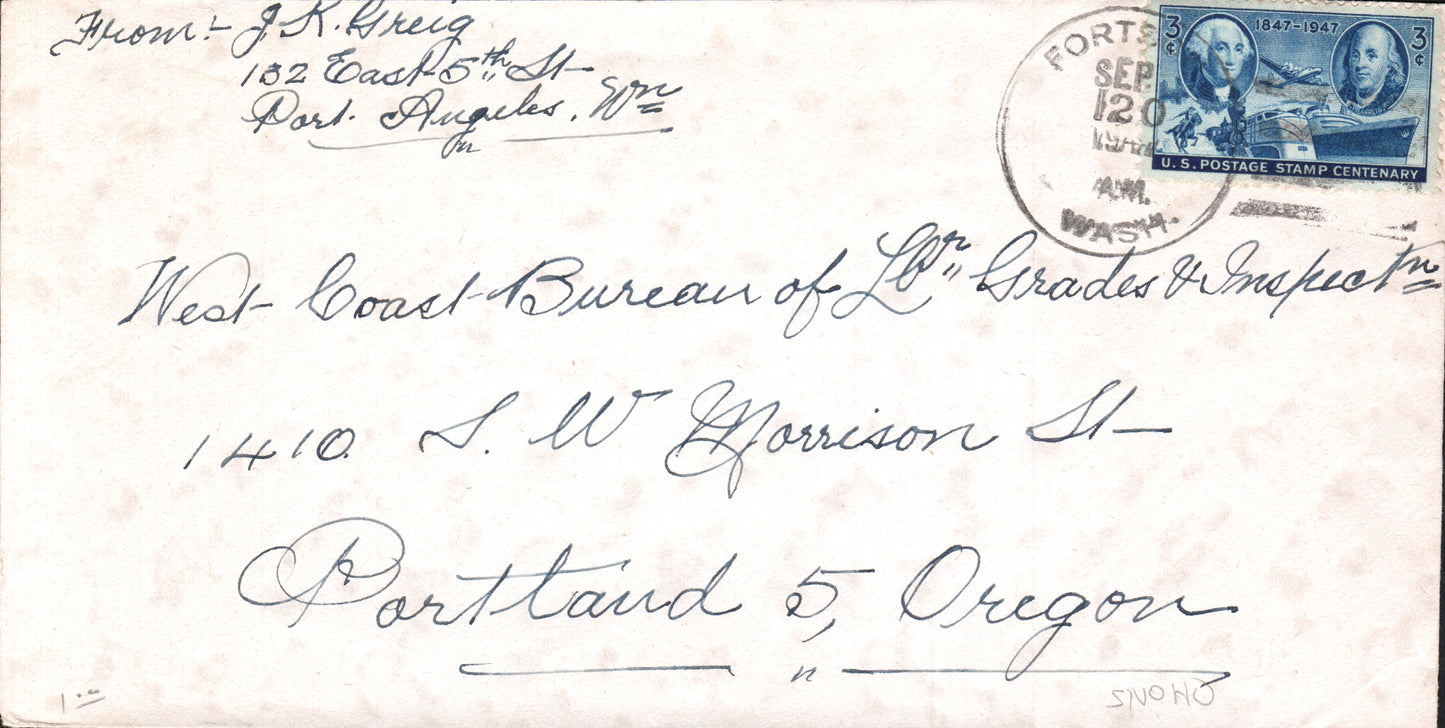 From:- J. K. Greig
132 East 5th St
Port Angeles, Wn
3¢ 1847-1947 3¢
U.S. POSTAGE STAMP CENTENARY
SEP
120
A.M.
WASH.
West Coast Bureau of Lbr Grades & Inspectn
1410 S. W Morrison St
Portland 5, Oregon
1.00
SNOHO